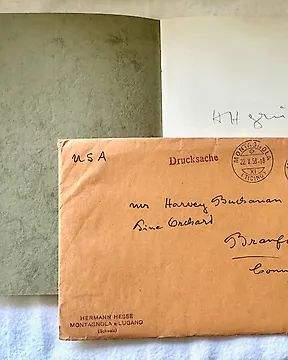 HH
USA
Drucksache
MONTAGNOLA
22.V.58
(TICINO)
Mr Harvey Buchanan
Pine Orchard
Branfo
Conn
HERMANN HESSE
MONTAGNOLA s/LUGANO
(Schweiz)